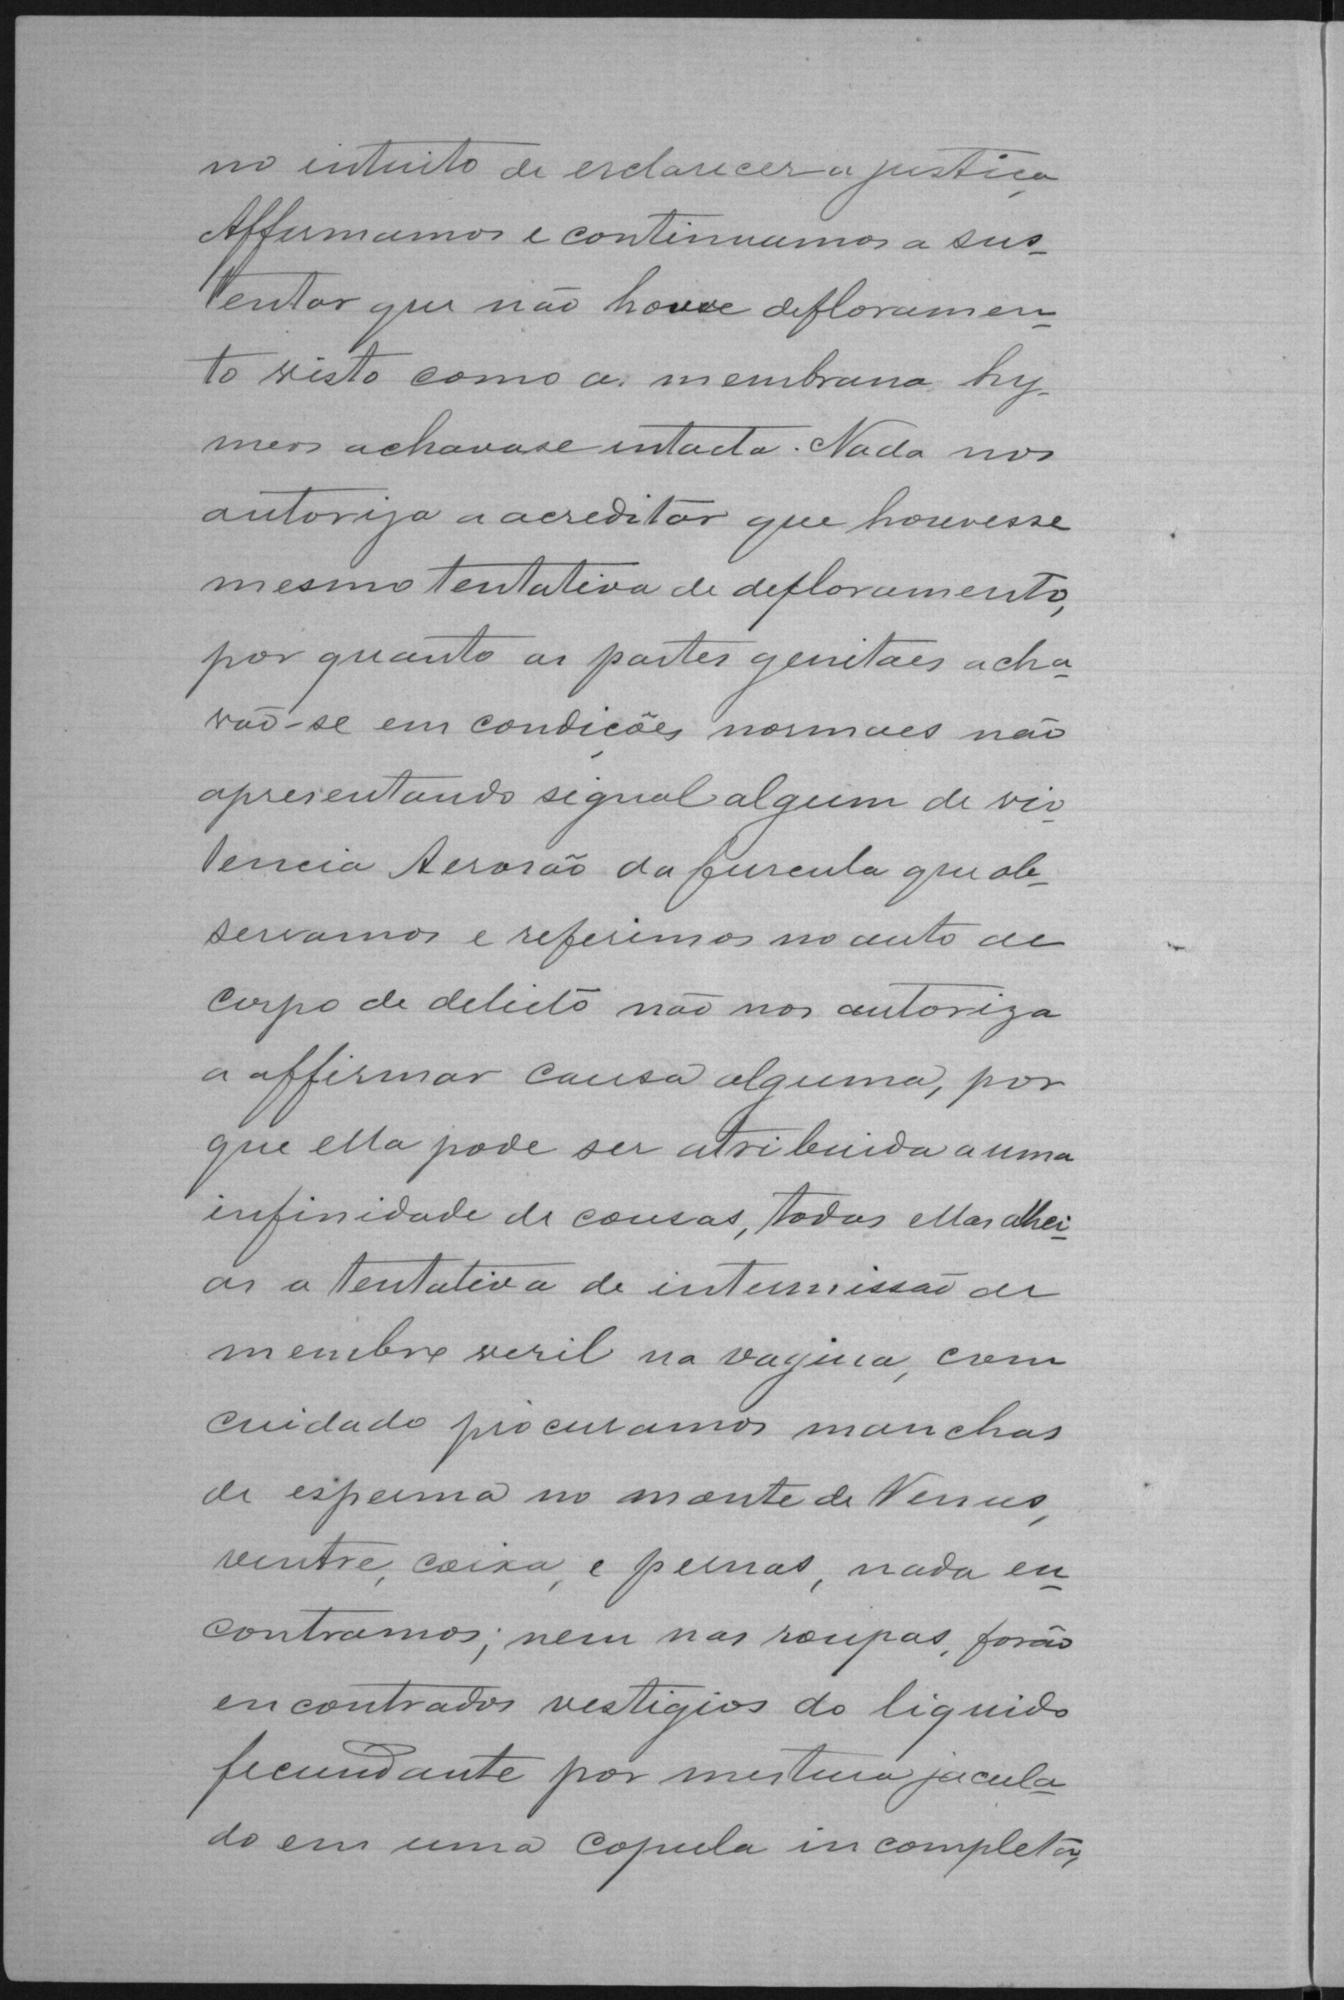 no intuito de esclarecer a justiça
Affirmamos e continuamos a sus-
tentar que não houve defloramen-
to visto como a membrana hy-
men achava se intacta. Nada nos
autoriza a acreditar que houvesse
mesmo tentativa de defloramento,
por quanto as partes genitaes acha-
vão-se em condições normaes não
apresentando signal algum de vio-
lencia A erosão da furcula que ob-
servamos e referimos no auto de
corpo de delicto não nos autoriza
a affirmar causa alguma, por
que ella pode ser atribuida a uma
infinidade de cousas, todas ellas alhei-
as a tentativa de intermissão de
membro veril na vagina, com
cuidado procuramos manchas
de esperma no monte de Venus,
ventre, coixa, e pernas, nada en-
contramos; nem nas roupas, forão
encontrados vestigios do liquido
fecundante por mestura jacula-
do em uma copula incompleta,